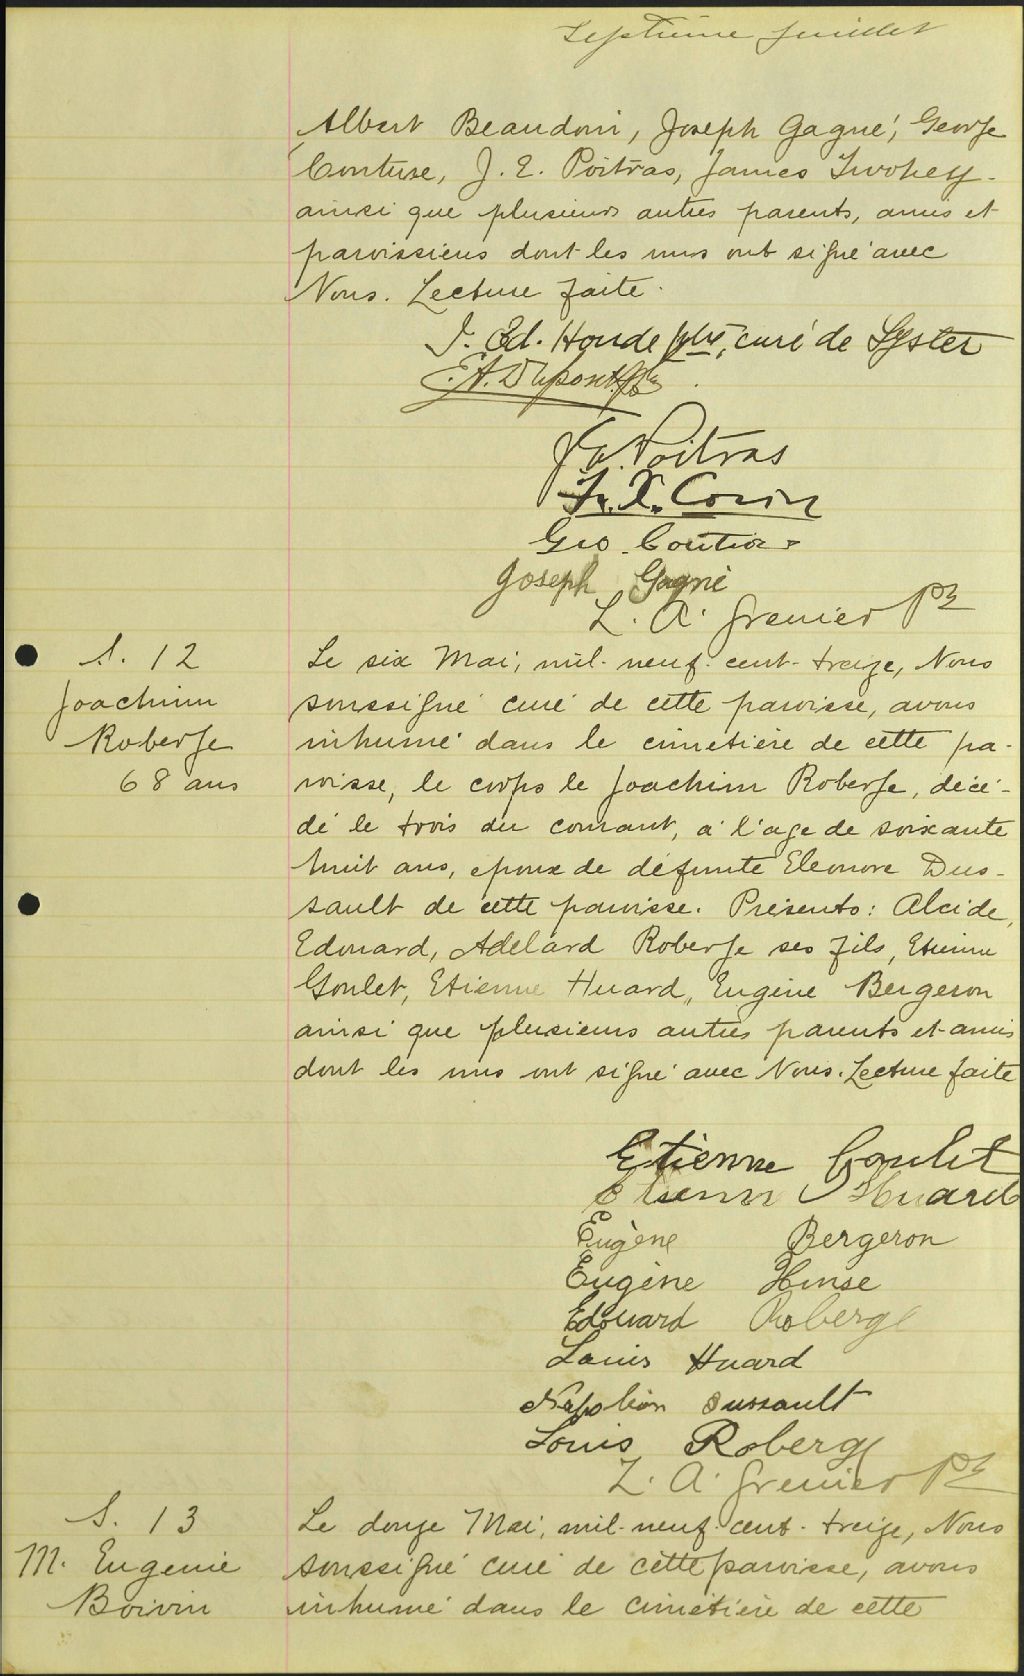 Septième feuillet
Albert Beaudoin, Joseph Gagné, George
Couture, J. E. Poitras, James
ainsi que plusieurs autres parents, amis et
paroissiens dont les uns ont signé avec
Nous. Lecture faite.
J. Ed. Houde ptre, curé de Lyster
E. A. Dupont
Poitras
F. X.
Geo. Couture
Joseph Gagné
L. A. Grenier Ptr
S. 12
Joachim
Roberge
68 ans
Le six Mai, mil-neuf-cent-treize, Nous
soussigné curé de cette paroisse, avons
inhumé dans le cimetière de cette pa-
roisse, le corps le Joachim Roberge, décé-
dé le trois du courant, à l'age de soixante
huit ans, epoux de défunte Eleonore Dus-
sault de cette paroisse. Présents: Alcide,
Edouard, Adélard Roberge ses fils, Etienne
Goulet, Etienne Huard, Eugène Bergeron
ainsi que plusieurs autres parents et amis
dont les uns ont signé avec Nous. Lecture faite
Etienne Goulet
Etienne Huard
Eugène Bergeron
Eugène Hinse
Edouard Roberge
Louis Huard
Napoléon Dussault
Louis Roberge
L. A. Grenier Ptr
S. 13
M. Eugenie
Boivin
Le douze Mai, mil-neuf-cent-treize, Nous
soussigné curé de cette paroisse, avons
inhumé dans le cimetière de cette